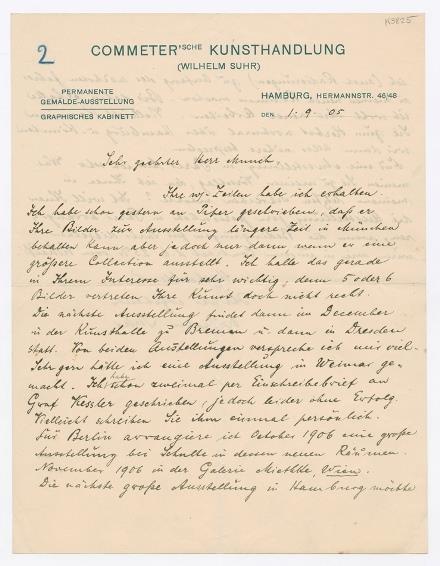 K3825
2
COMMETER'SCHE KUNSTHANDLUNG
(WILHELM SUHR)
PERMANENTE
GEMÄLDE-AUSSTELLUNG
GRAPHISCHES KABINETT
HAMBURG, HERMANNSTR. 46/48
DEN 1.-9-05
Sehr geehrter Herr Munch.
Ihre w/-Zeilen habe ich erhalten.
Ich habe schon gestern an geschrieben, daß er
Ihre Bilder zur Ausstellung längere Zeit in München
behalten kann aber jedoch nur dann, wenn er eine
größere Collection ausstellt. Ich halte das gerade
in Ihrem Interesse für sehr wichtig; denn 5 oder 6
Bilder vertreten Ihre Kunst doch nicht recht.
Die nächste Ausstellung findet dann im December
in der Kunsthalle zu Bremen u. dann in Dresden
statt. Von beiden Ausstellungen verspreche ich mir viel.
Sehr gern hätte ich eine Ausstellung in Weimar ge-
macht. Ich habe schon zweimal per Einschreibebrief an
Graf Kessler geschrieben, jedoch leider ohne Erfolg.
Vielleicht schreiben Sie ihm einmal persönlich.
Für Berlin arrangiere ich October 1906 eine große
Ausstellung bei Schulte in dessen neuen Räumen.
November 1906 in der Galerie Miethke, Wien.
Die nächste große Ausstellung in Hamburg möchte